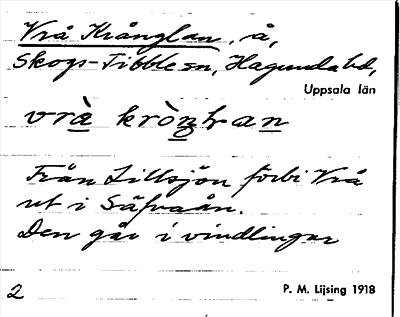 Vrå Krånglan, å,
Skogs-Tibble sn, Hagunda hd,
Uppsala län
vrå̀ krò̀n̥ɫ-an
Från Lillsjön förbi Vrå
ut i Säfvaån.
Den går i vindlingar
2
P. M. Lijsing 1918